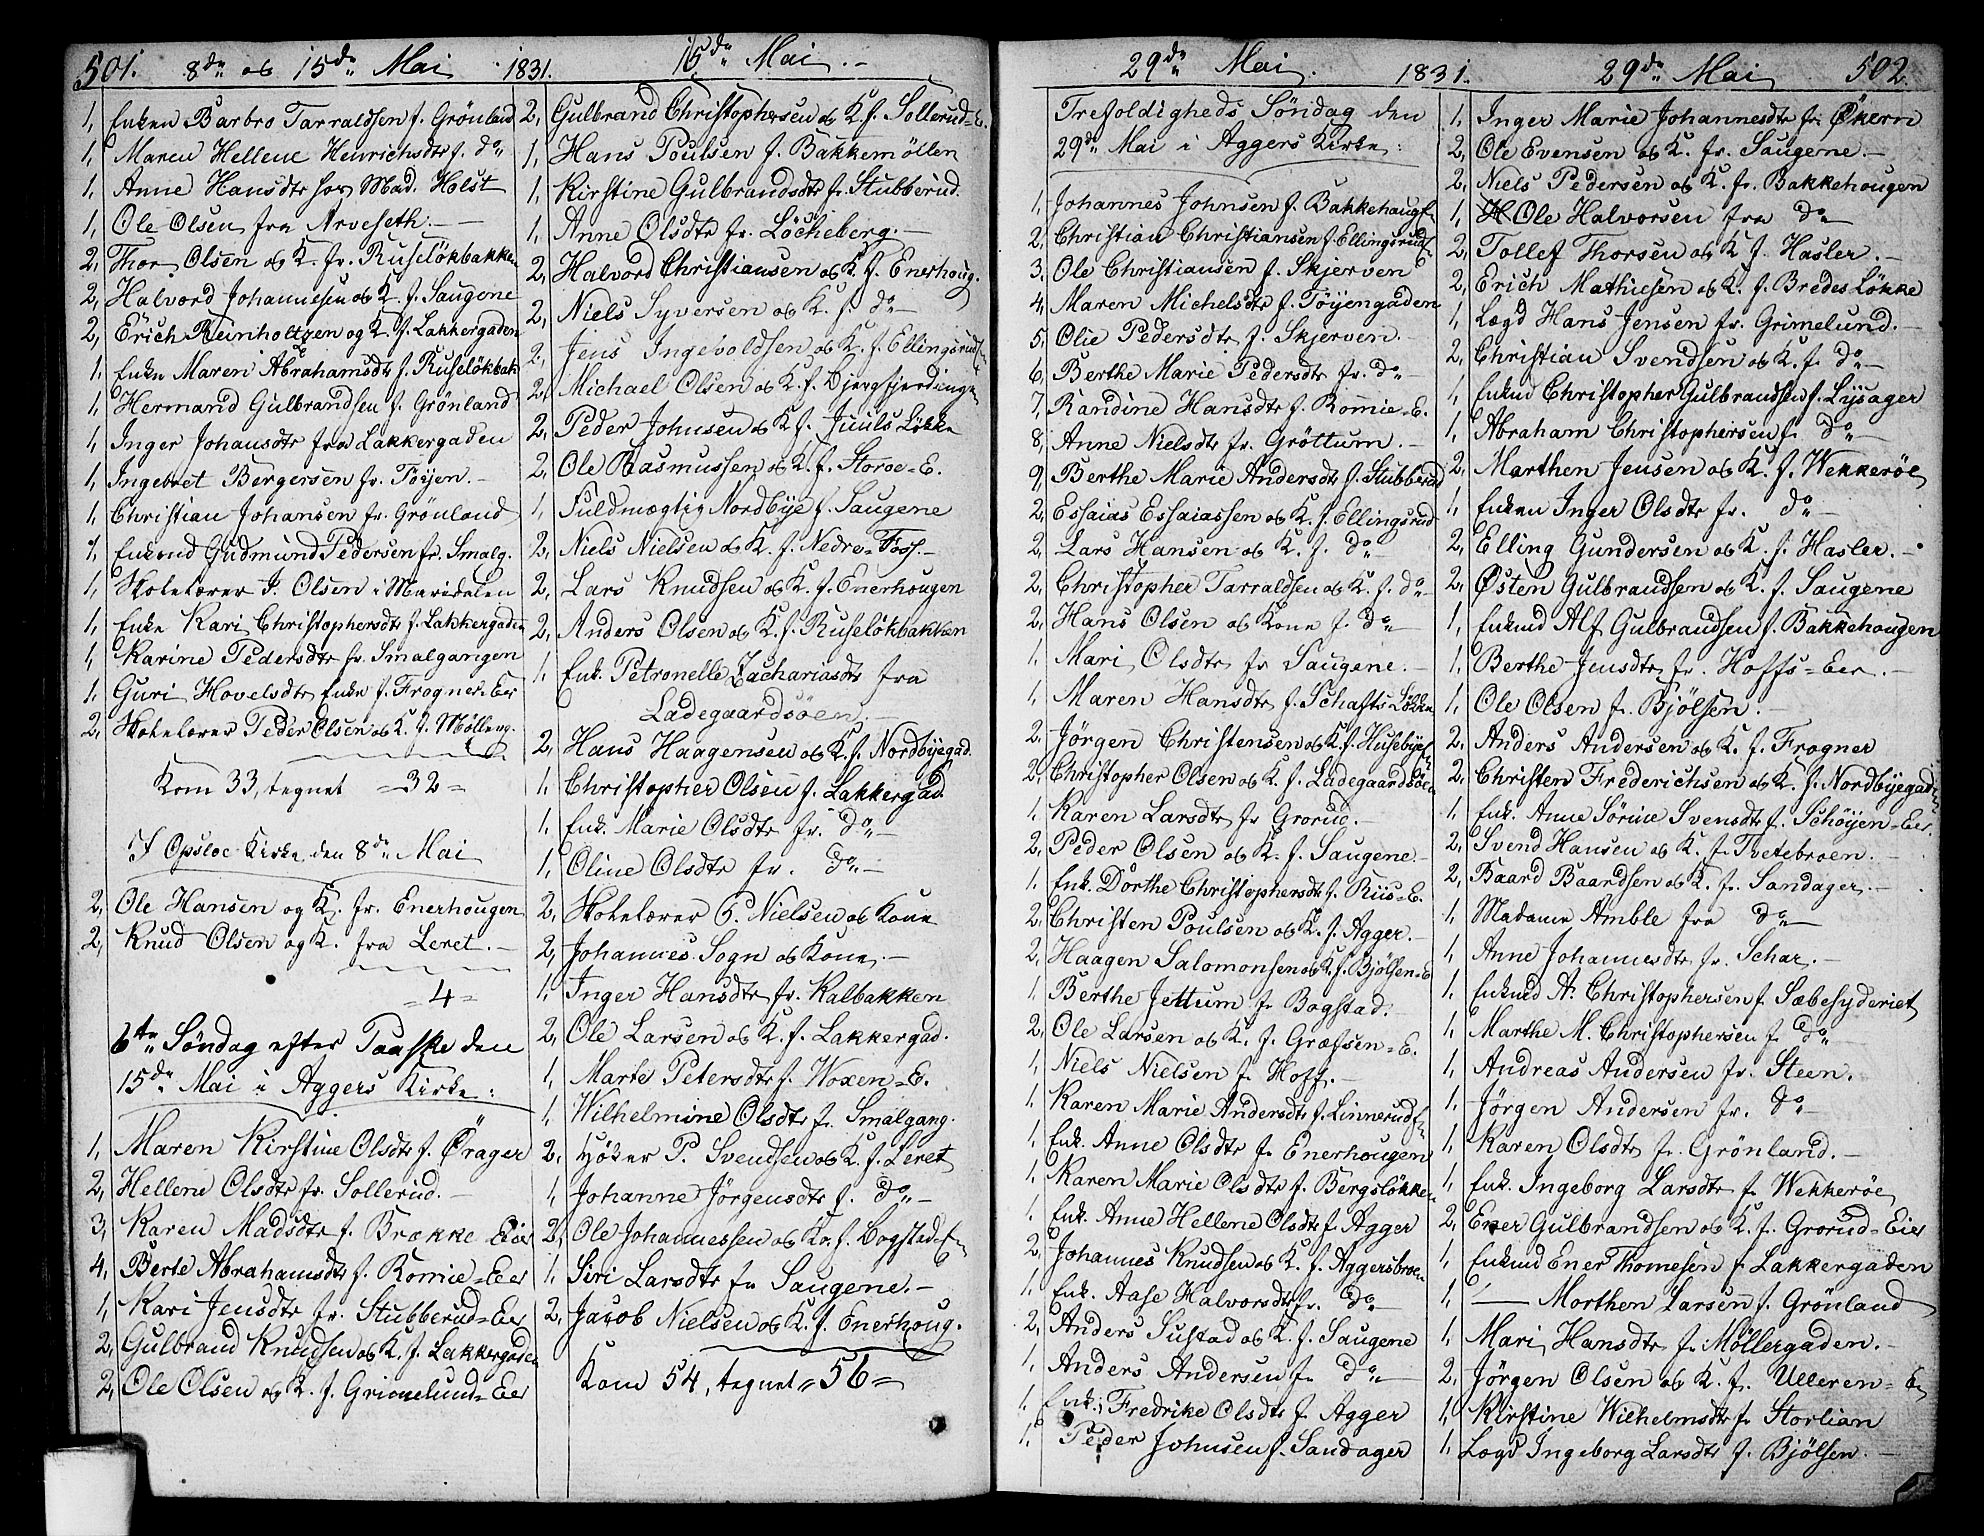 501. 8de og 15de Mai 1831.
1, Enken Barbro Tarraldsen f. Grönland
1, Maren Hellene Henrichsdtr f. do
1, Anne Hansdtr hos Mad. Holst
1, Ole Olsen fra Arveseth.
2, Thor Olsen og K. fr. Ruseløkbakken
2, Halvord Johannesen og K. f. Saugene
2, Erich Reinholtzen og K. f. Lakkergaden
1, Enke Maren Abrahamsdtr f. Ruseløkbak
1, Hermand Gulbrandsen f. Grönland
1, Inger Johansdtr fra Lakkergaden
1, Ingebret Bergersen fr. Töyen.
1, Christian Johansen fr. Grönland
1, Enkemd Gudmund Pedersen fr. Smalg.
1, Skolelærer J. Olsen i Maridalen
1, Enke Kari Christophersdtr f. Lakkergaden
1, Karine Pedersdtr fr. Smalgangen
1, Guri Hovelsdtr Enke f. Frogner-Eier
2, Skolelærer Peder Olsen og K. f. Mölleng.
Kom 33, tegnet =32=
I Opsloe Kirke den 8de Mai
2, Ole Hansen og K. fr. Enerhougen
2, Knud Olsen og K. fra Leret.
=4=
6te Søndag efter Paaske den
15de Mai i Aggers Kirke:
1, Maren Kirstine Olsdtr f. Örager
2, Hellene Olsdtr fr. Sollerud.
3, Karen Madsdtr f. Brække Eier
4, Berte Abrahamsdtr f. Romie=Eier
1, Kari Jensdtr fr. Stubberud=Eier
2, Gulbrand Knudsen og K. f. Lakkergaden
2, Ole Olsen og K. f. Grimelund=Eier
15de Mai.
2, Gulbrand Christophersen og K. f. Sollerud=E.
1, Hans Poulsen f. Bakkemöllen
1, Kirstine Gulbrandsdtr fr. Stubberud.
1, Anne Olsdtr fr. Löcheberg.
2, Halvord Christiansen og K. f. Enerhoug.
2, Niels Syversen og K. f. do
2, Jens Ingevoldsen og K. f. Ellingsrud
2, Michael Olsen og K. f. Bjergfjerdingen
2, Peder Johnsen og K. f. Juuls Løkke
2, Ole Rasmussen og K. f. Storoe-E.
1, Fuldmægtig Nordbye f. Saugene
2, Niels Nielsen og K. f. Nedre=Foss.
2, Lars Knudsen og K. f. Enerhougen
2, Anders Olsen og K. f. Ruseløkbakken
1, Enk. Petronelle Zachariasdtr fra
Ladegaardsöen.
2, Hans Haagensen og K. f. Nordbyegad.
1, Christopher Olsen f. Lakkergad.
1, Enk. Marie Olsdtr fr. do
1, Oline Olsdtr fr. do
2, Skolelærer P. Nielsen og Kone
2, Johannes Sogn og Kone.
1, Inger Hansdtr fr. Kalbakken
2, Ole Larsen og K. f. Lakkergad.
1, Marte Petersdtr f. Woxen=E.
1, Wilhelmine Olsdtr fr. Smalgang.
2, Höker P. Svendsen og K. f. Leret
1, Johanne Jörgensdtr f. do
2, Ole Johannessen og Ko. f. Bogstad
1, Siri Larsdtr fr. Saugene.
2, Jacob Nielsen og K. f. Enerhoug.
Kom 54, tegnet =56=
29de Mai. 1831.
Trefoldigheds Söndag den
29de Mai i Aggers Kirke:
1, Johannes Johnsen f. Bakkehaug
2, Christian Christiansen f. Ellingsrud
3, Ole Christiansen f. Skjerven
4, Maren Michelsdtr f. Töyengaden
5, Olie Pedersdtr f. Skjerven.
6, Berthe Marie Pedersdtr fr. do
7, Randine Hansdtr f. Romie=E.
8, Anne Nielsdtr fr. Gröttum.
9, Berthe Marie Andersdtr f. Stubberud
2, Essaias Essaiassen og K. f. Ellingsrud
2, Lars Hansen og K. f. do
2, Christopher Tarraldsen og K. f. do
2, Hans Olsen og Kone f. do
1, Mari Olsdtr fr Saugene.
1, Maren Hansdtr f. Schafts Løkke
2, Jörgen Christensen og K. f. Husebye
2, Christopher Olsen og K. f. Ladegaardsöen
1, Karen Larsdtr fr Grorud.
2, Peder Olsen og K. f. Saugene
1, Enk. Dorthe Christophersdtr f. Riis=E.
2, Christen Poulsen og K. f. Agger.
2, Haagen Salomonsen og K. f. Bjölsen=E
1, Berthe Jettum fr Bogstad.
2, Ole Larsen og K. f. Græfsen=E.
1, Niels Nielsen fr Hoff.
1, Karen Marie Andersdtr f. Linnerud
1, Enk. Anne Olsdtr fr Enerhougen
1, Karen Marie Olsdtr f. Bergsløkken
1, Enk. Anne Hellene Olsdtr f. Agger
2, Johannes Knudsen og K. f. Aggersbroen
1, Enk. Aase Halvorsdtr fr. do
2, Anders Sustad og K. f. Saugene
1, Anders Andersen fr do
1, Enk. Fredrike Olsdtr f. Agger
1, Peder Johnsen f. Sandager
29de Mai 502.
1, Inger Marie Johannesdtr fr. Økern
2, Ole Evensen og K. fr. Saugene.
2, Niels Pedersen og K. fr. Bakkehougen
1, Ole Halvorsen fra do
2, Tollef Thorsen og K. f. Hasler.
2, Erich Mathiesen og K. f. Bredes Løkke
1, Lægd Hans Jensen fr. Grimelund.
2, Christian Svendsen og K. f. do
1, Enkmd Christopher Gulbrandsen f. Lysager
1, Abraham Christophersen f. do
2, Marthen Jensen og K. f. Wekkeröe
1, Enken Inger Olsdtr fr. do
2, Elling Gundersen og K. f. Hasler.
2, Østen Gulbrandsen og K. f. Saugene
1, Enkmd Alf Gulbrandsen f. Bakkehougen
1, Berthe Jensdtr fr. Hoffs=Eier.
1, Ole Olsen fr. Bjölsen.
2, Anders Andersen og K. f. Frogner
2, Christen Frederichsen og K. f. Nordbyegad
1, Enk. Anne Sörine Svensdtr f. Schöyen=Eier.
2, Svend Hansen og K. fr. Tvetebroen.
2, Baard Baardsen og K. fr. Sandager.
1, Madame Amble fra do
1, Anne Johannesdtr fr. Schar.
1, Enkmd A. Christophersen f. Sæbesyderiet
1, Marthe M. Christophersen f. do
1, Andreas Andersen fr. Steen.
1, Jörgen Andersen fr. do
1, Karen Olsdtr fr. Grönland.
1, Enk. Ingeborg Larsdtr fr Wekkeröe
2, Ener Gulbrandsen og K. f. Grorud=Eier
1, Enkmd Ener Thomesen fr Lakkergaden
1, — Morthen Larsen f. Grönland
1, Mari Hansdtr fr Möllergaden.
2, Jörgen Olsen og K. fr. Ulleren=E
1, Kirstine Wilhelmsdtr fr Storlian
1, Lægd Ingeborg Larsdtr f. Bjölsen.